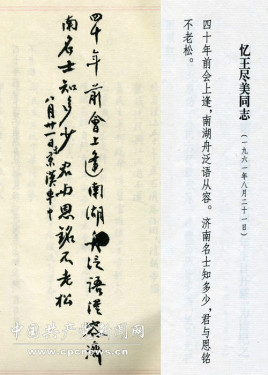 忆王尽美同志
(一九六一年八月二十一日)
四十年前会上逢,南湖舟泛语从容。济南名士知多少,君与恩铭
不老松。
四十年前會上逢南湖舟泛語從容濟
南名士知多少君与恩銘不老松
八月廿一日京漢車中
中国共产党新闻网
www.cpcnews.cn